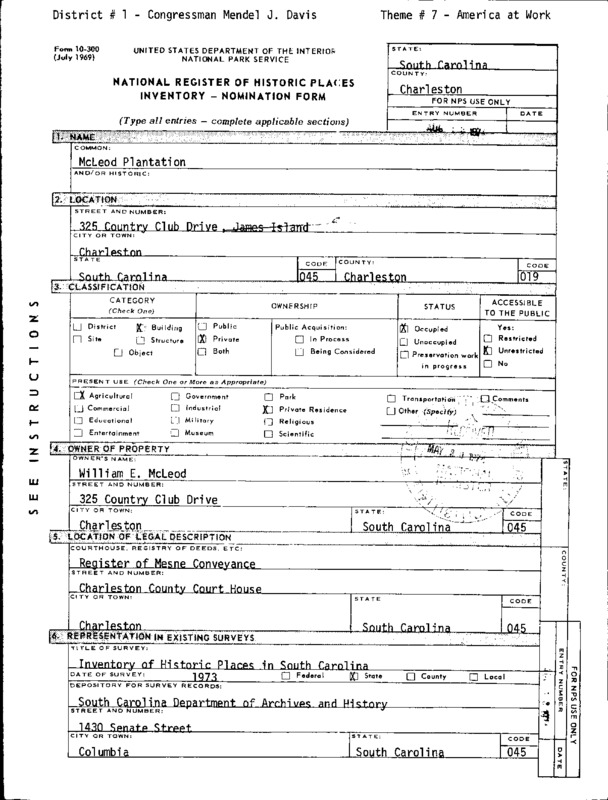 District # 1 - Congressman Mendel J. Davis Theme # 7 - America at Work
Form 10-300
(July 1969)
UNITED STATES DEPARTMENT OF THE INTERIOR
NATIONAL PARK SERVICE
NATIONAL REGISTER OF HISTORIC PLACES
INVENTORY - NOMINATION FORM
(Type all entries - complete applicable sections)
STATE:
South Carolina
COUNTY:
Charleston
FOR NPS USE ONLY
ENTRY NUMBER DATE
1. NAME
COMMON:
McLeod Plantation
AND/OR HISTORIC:
2. LOCATION
STREET AND NUMBER:
325 Country Club Drive, James Island
CITY OR TOWN:
Charleston
STATE CODE COUNTY: CODE
South Carolina 045 Charleston 019
3. CLASSIFICATION
CATEGORY
(Check One)
OWNERSHIP
STATUS
ACCESSIBLE
TO THE PUBLIC
District X Building
Site Structure
Object
Public
X Private
Both
Public Acquisition:
In Process
Being Considered
X Occupied
Unoccupied
Preservation work
in progress
Yes:
Restricted
X Unrestricted
No
PRESENT USE (Check One or More as Appropriate)
X Agricultural Government Park Transportation Comments
Commercial Industrial X Private Residence Other (Specify)
Educational Military Religious
Entertainment Museum Scientific
4. OWNER OF PROPERTY
OWNER'S NAME:
William E. McLeod
STREET AND NUMBER:
325 Country Club Drive
CITY OR TOWN: STATE: CODE
Charleston South Carolina 045
5. LOCATION OF LEGAL DESCRIPTION
COURTHOUSE, REGISTRY OF DEEDS, ETC:
Register of Mesne Conveyance
STREET AND NUMBER:
Charleston County Court House
CITY OR TOWN: STATE CODE
Charleston South Carolina 045
6. REPRESENTATION IN EXISTING SURVEYS
TITLE OF SURVEY:
Inventory of Historic Places in South Carolina
DATE OF SURVEY: 1973 Federal X State County Local
DEPOSITORY FOR SURVEY RECORDS:
South Carolina Department of Archives and History
STREET AND NUMBER:
1430 Senate Street
CITY OR TOWN: STATE: CODE
Columbia South Carolina 045
SEE INSTRUCTIONS
STATE:
COUNTY:
ENTRY NUMBER DATE
FOR NPS USE ONLY